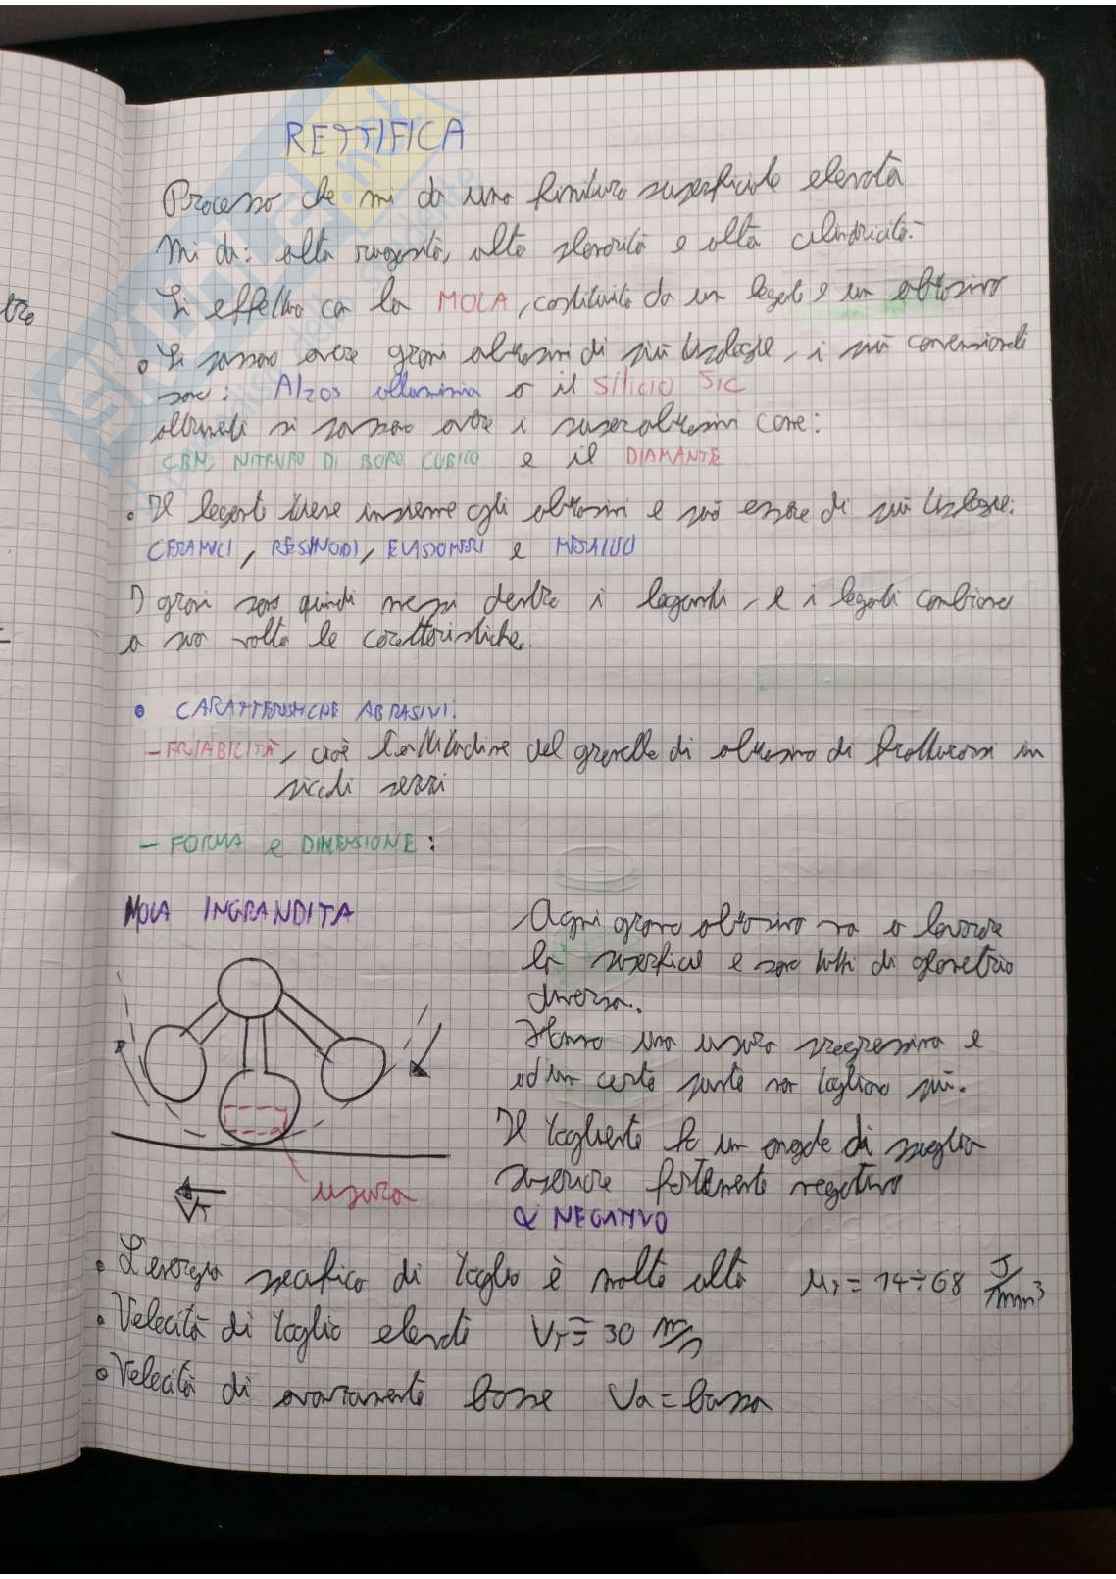 RETTIFICA
Processo che mi da una finitura superficiale elevata
Mi da: alta rugosità, alta planarità e alta cilindricità.
Si effettua con la MOLA, costituita da un legante e un abrasivo
• Si possono avere grani abrasivi di più tipologie, i più convenzionali
sono: Al2O3 allumina o il Silicio SiC
altrimenti si possono avere i superabrasivi come:
CBN, NITRURO DI BORO CUBICO e il DIAMANTE
• Il legante tiene insieme gli abrasivi e può essere di più tipologie:
CERAMICI, RESINOIDI, ELASTOMERI e METALLICI
I grani sono quindi messi dentro i leganti, e i leganti cambiano
a sua volta le caratteristiche.
• CARATTERISTICHE ABRASIVI:
- FRIABILITÀ, cioè l'attitudine del granello di abrasivo di fratturarsi in
piccoli pezzi
- FORMA e DIMENSIONE:
MOLA INGRANDITA
usura
VT
Ogni grano abrasivo va a lavorare
la superficie e sono tutti di geometria
diversa.
Hanno una usura progressiva e
ad un certo punto non tagliano più.
Il tagliente ha un angolo di spoglia
superiore fortemente negativo
α NEGATIVO
• L'energia specifica di taglio è molto alta μr = 14÷68 J/mm³
• Velocità di taglio elevate VT = 30 m/s
• Velocità di avanzamento basse Va = bassa